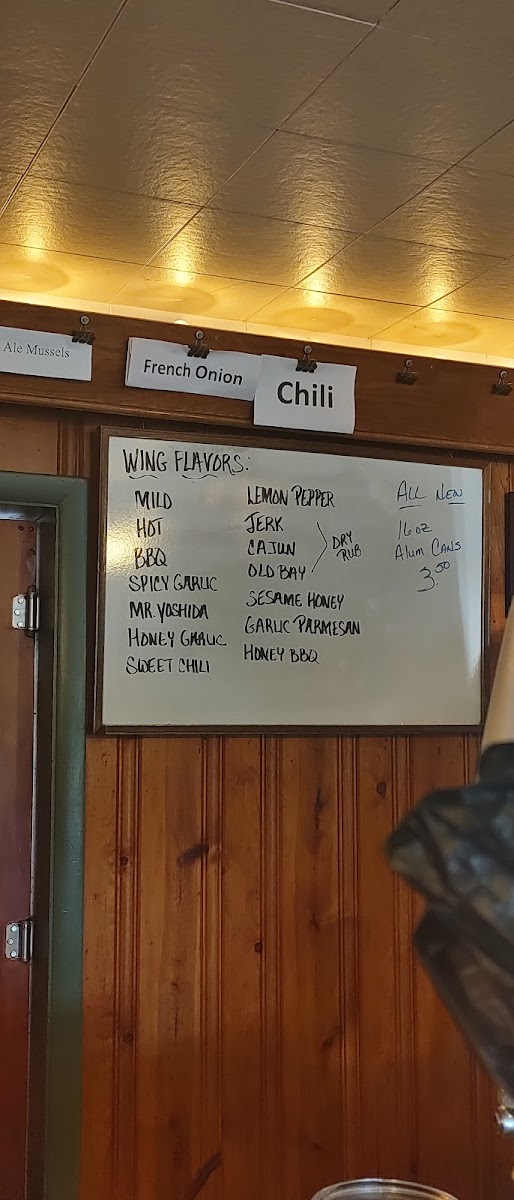 Ale Mussels
French Onion
Chili
WING FLAVORS:
MILD
HOT
BBQ
SPICY GARLIC
MR. YOSHIDA
HONEY GARLIC
SWEET CHILI
LEMON PEPPER
JERK
CAJUN
OLD BAY
DRY
RUB
SESAME HONEY
GARLIC PARMESAN
HONEY BBQ
ALL NEW
16 oz
Alum CANS
3.50